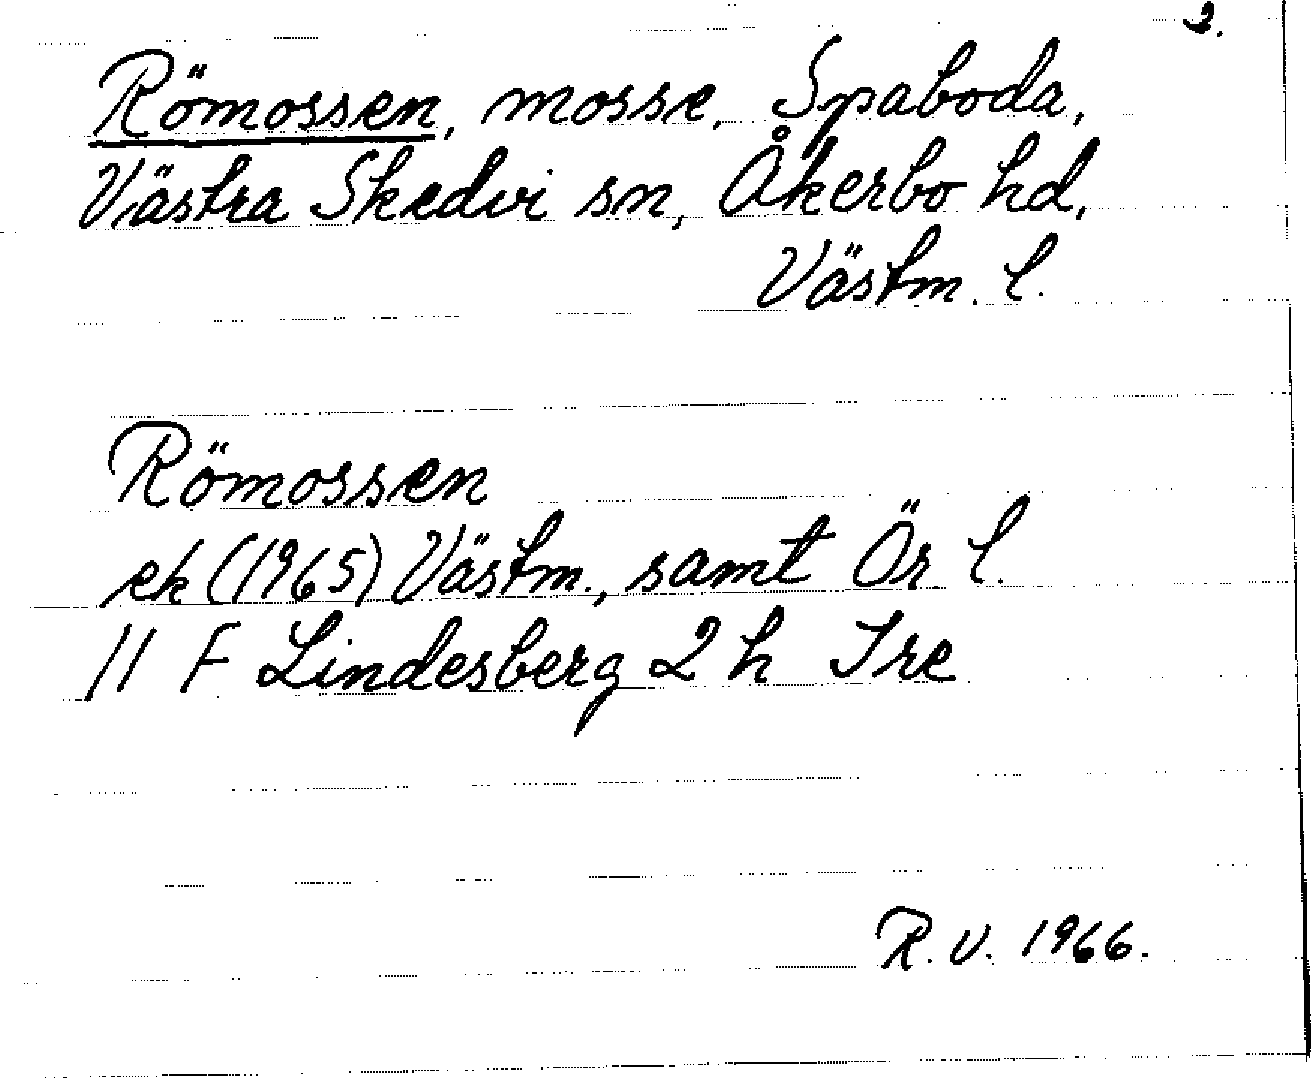 2.
Römossen, mosse, Spaboda,
Västra Skedvi sn, Åkerbo hd,
Västm. l.
Römossen
ek (1965) Västm., samt Ör l.
11 F Lindesberg 2 h Tre
R. V. 1966.